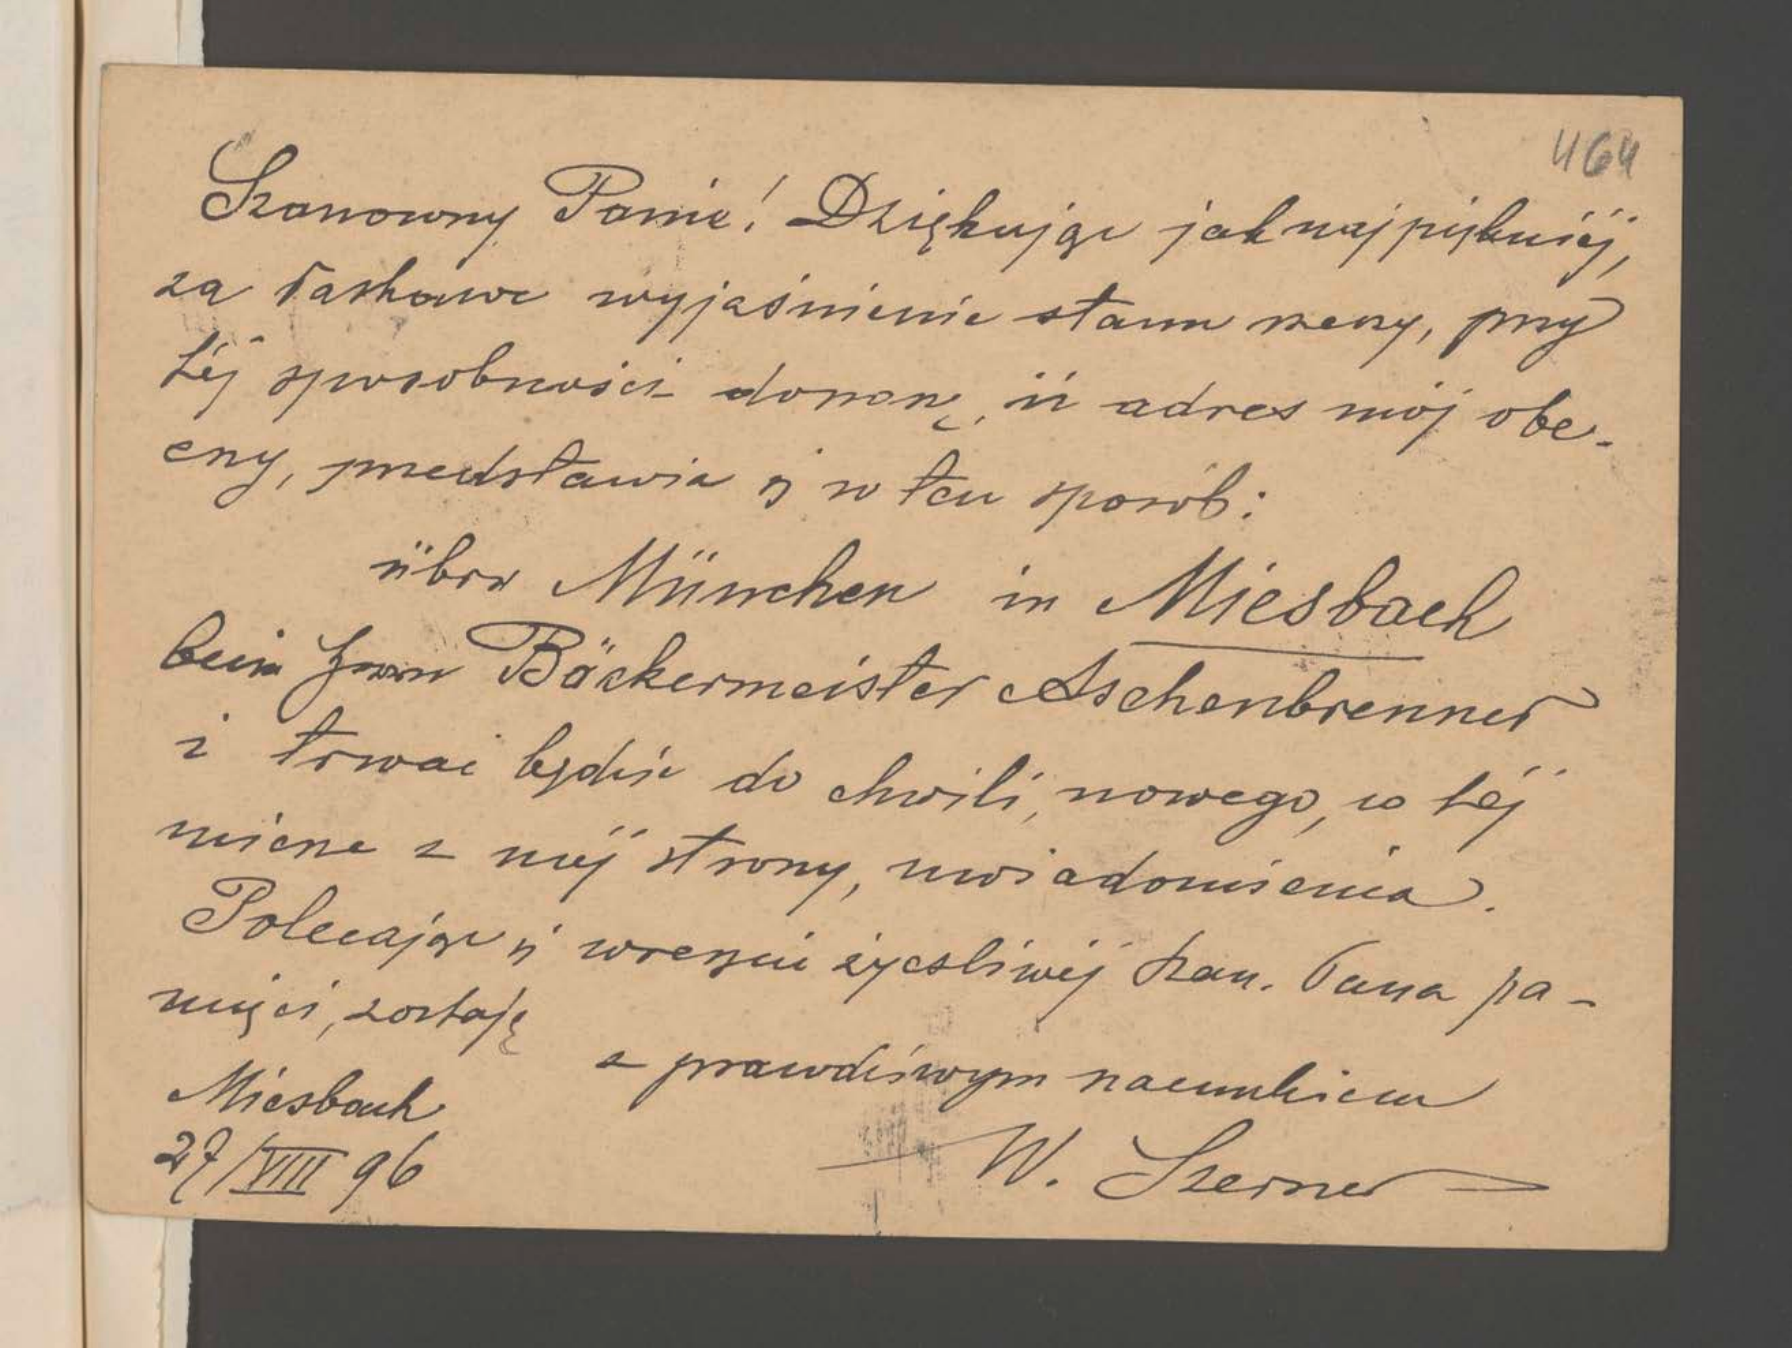 464
Szanowny Panie! Dziękując jaknajpiękniéj,
za łaskawe wyjaśnienie stanu rzeczy, przy
téj sposobności donoszę, iż adres mój obe-
cny, przedstawia się w ten sposób:
über München in Miesbach
beim Herrn Bäckermeister Aschenbrenner
i trwać będzie do chwili, nowego, w téj
mierze z méj strony, uwiadomienia.
Polecając się wreszcie życzliwéj Szan. Pana pa-
mięci, zostaję
z prawdziwym szacunkiem
Miesbach
W. Szerner
27/VIII 96